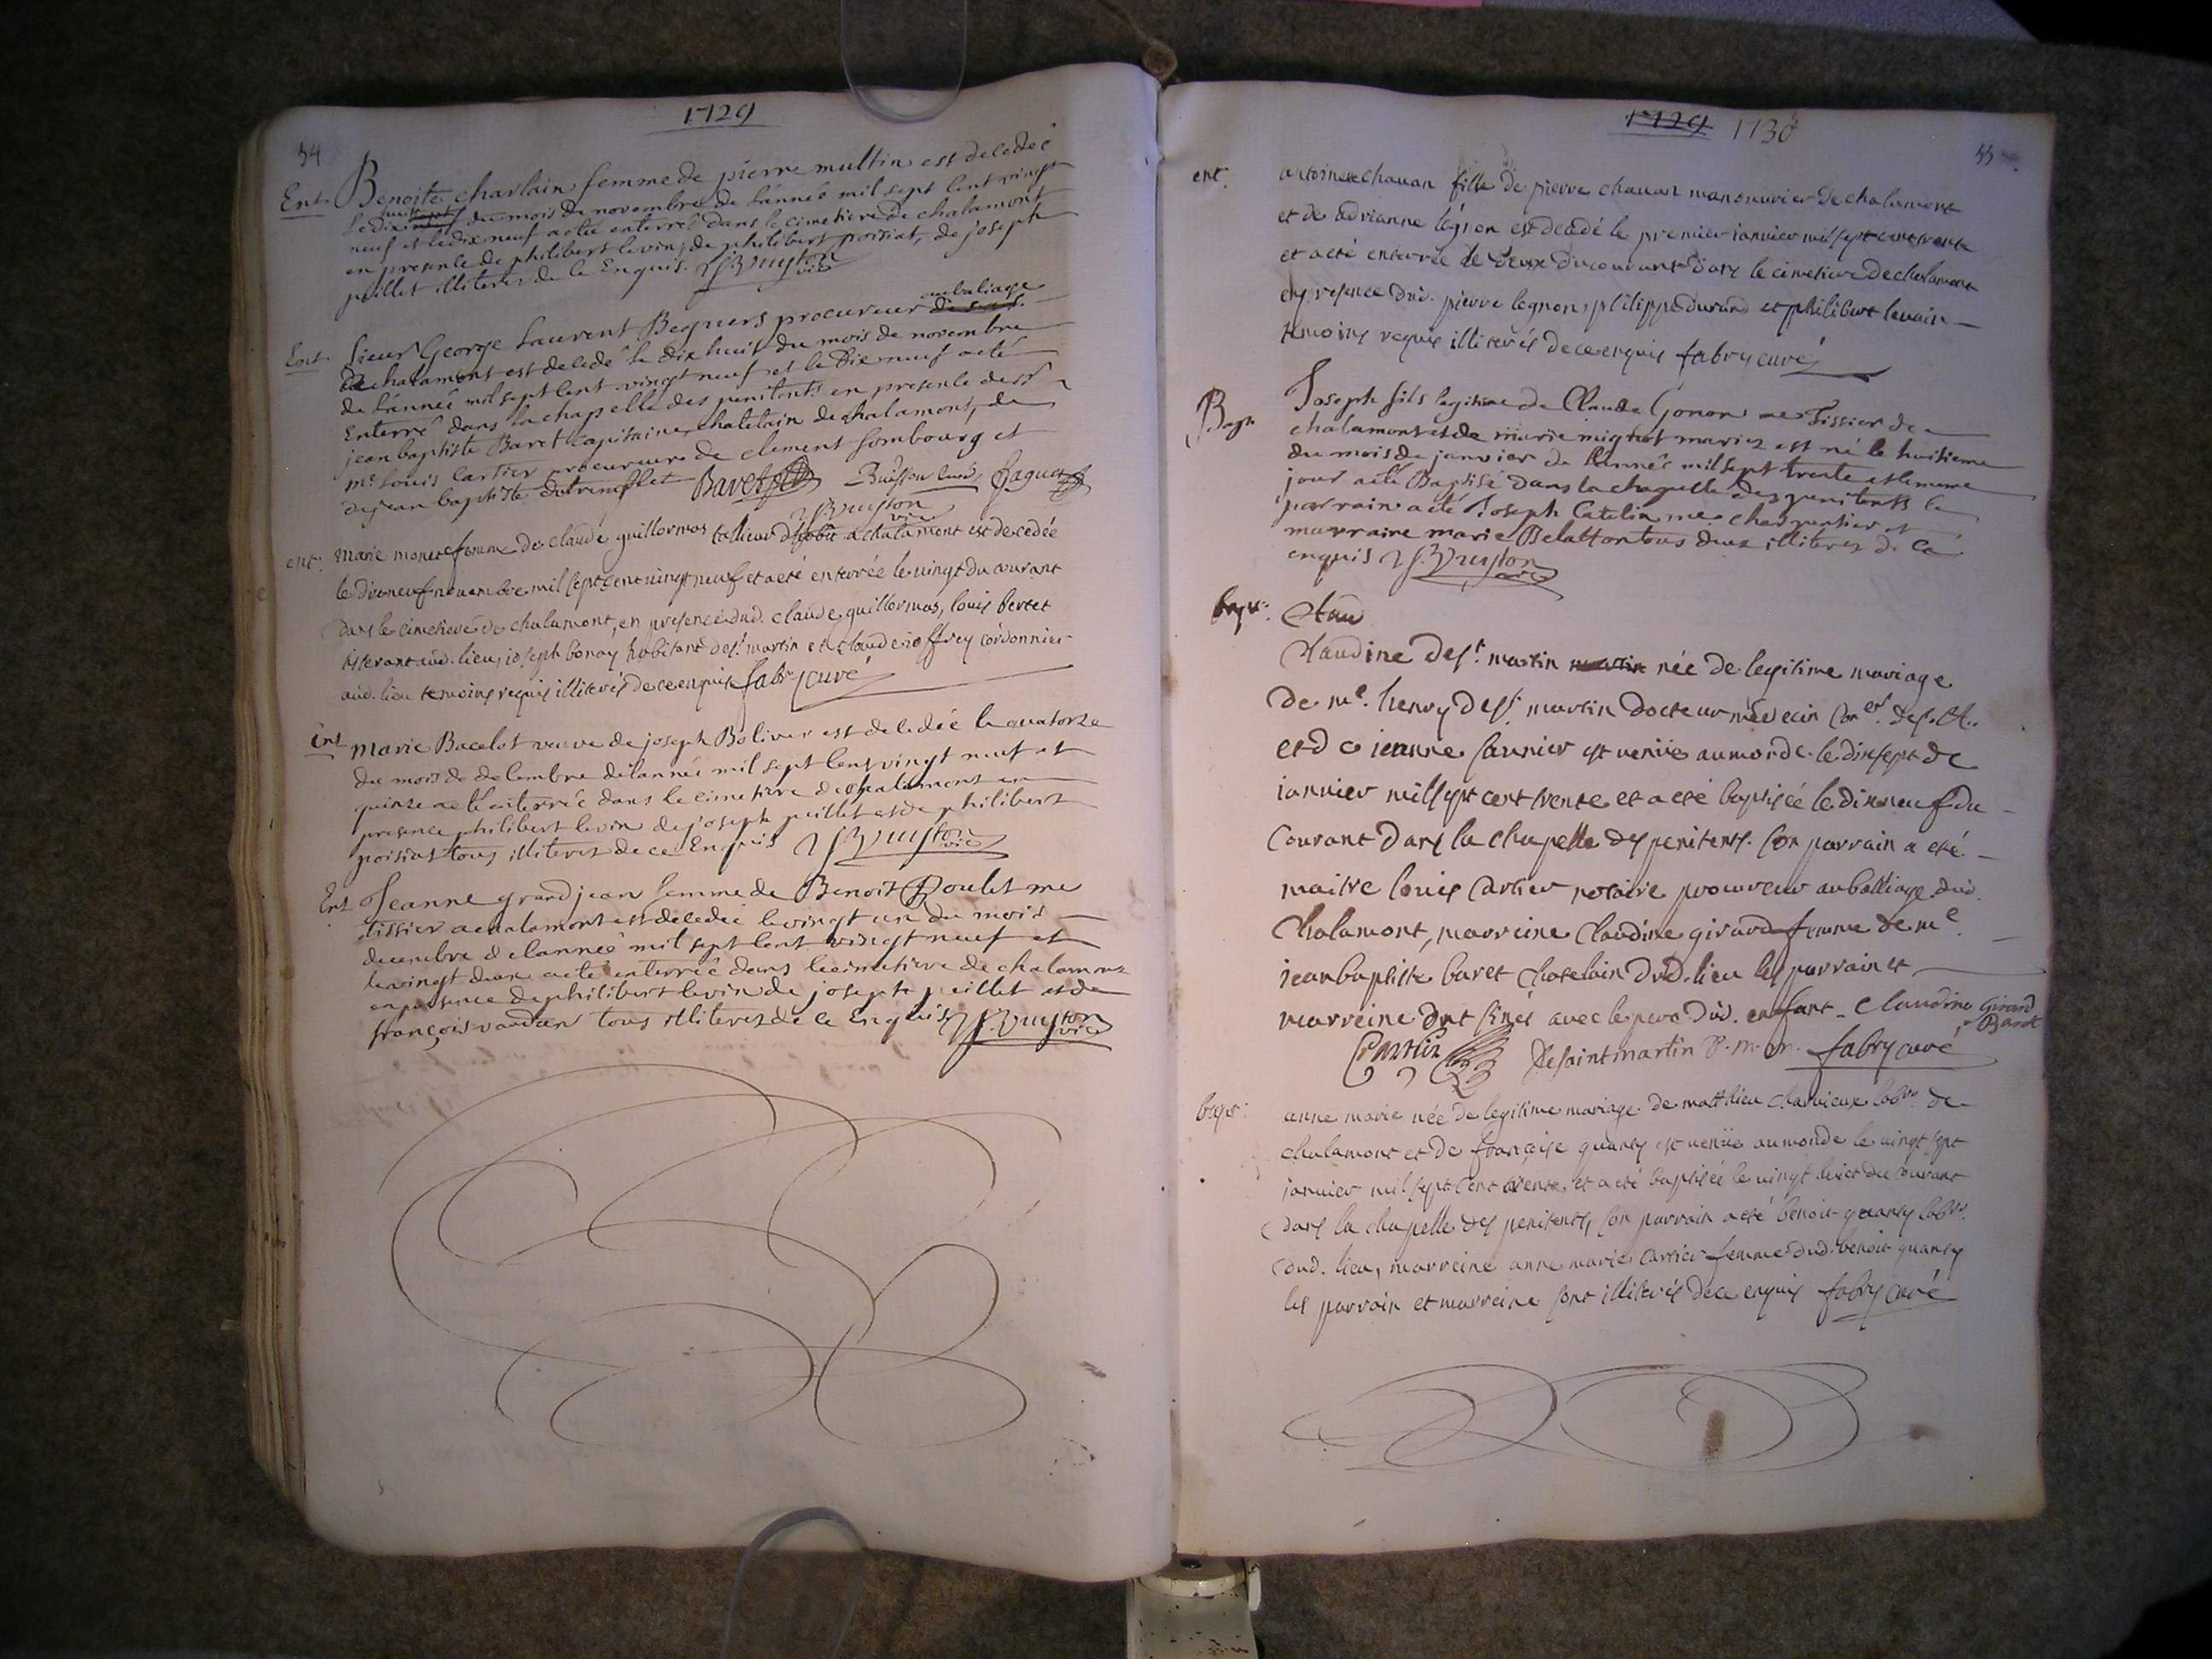 1729
54
Ent. Benoite charlain femme de pierre multin est decedée
le dix huit du mois de novembre de l'année mil sept cent vingt
neuf et le dix neuf a été enterré dans le cimetiere de chalamont
en presence de philibert levin, de philibert poisiat, de joseph
peillet illiteres de ce Enquis.
Ent. Sieur George Laurent Beguers procureur au baliage
de chalamont est decedé le dix huit du mois de novembre
de l'année mil sept cent vingt neuf et le dix neuf a été
Enterré dans la chapelle des penitents en presence de sr
jean baptiste Baret capitaine chatelain de chalamont, de
me. Louis Cartier procureur de clement sombourg et
de jean baptiste Baret
vic
ent. marie monet femme de claude guillermas tallieur d'habit a chalamont est decedée
le dixneuf nouembre mil sept cent uingt neuf et a eté enterrée le uingt du courant
dans le cimetiere de chalamont, en presence dud. claude guillermas, louis bertet
tisserant aud. lieu, joseph bonay habitant de st. martin et claude ioffrey cordonnier
aud. lieu temoins requis illiterés de ce enquis fabry curé
Ent marie Bacelot veuve de joseph Boliver est decedée le quatorze
du mois de decembre de l'année mil sept cent vingt neuf et
quinze a été enterrée dans le cimetiere de chalamont en
presence philibert levin de joseph peillet et de philibert
poisiat tous illiteres de ce Enquis
vic
Ent Jeanne grandjean femme de Benoit Roulet me
tissier a chalamont est decedée le vingt un du mois
decembre de l'année mil sept cent vingt neuf et
le vingt deux a été enterrée dans le cimetiere de chalamont
en presence de philibert levin de joseph peillet et de
françois vaudan tous illiteres de ce Enquis
vic
1729 1730
55
ent. antoinette chauan fille de pierre chauan manouurier de chalamont
et de adrianne légion est decedé le premier ianuier mil sept cent trente
et a eté enterrée le deux du courant dans le cimetiere de chalamont
en presence dud. pierre legnon, philippe durand et philibert leuain
temoins requis illiterés de ce enquis fabry curé
Bapt Joseph fils legitime de Claude Gonon me Tissier de
chalamont et de marie mignot mariez est né le huitieme
du mois de janvier de l'année mil sept trente et le meme
jour a été Baptisé dans la chapelle des penitents le
parrain a été Joseph Catelin me. charpentier et
marraine marie Belatton tous deux illiteres de ce
enquis
vic
bapt. Clau
Claudine de st. martin martin née de legitime mariage
de me. henry de st. martin docteur médecin
et de ieanne saunier est uenüe au monde le dixsept de
ianuier mil sept cent trente et a eté baptisée le dixneuf du
courant dans la chapelle des penitents. son parrain a eté
maitre louis cartier notaire procureur au balliage dud.
Chalamont, marreine Claudine girard femme de me.
jean baptiste baret chatelain dud. lieu les parrain et
marreine ont sinés avec le pere dud. enfant. Claudine Girard
Baret
Cartier De saint martin fabry curé
bapt. anne marie née de legitime mariage de matthieu charuieux labr. de
chalamont et de françoise quarsy est uenüe au monde le uingt sept
ianuier mil sept cent trente, et a eté baptisée le uingt huit du courant
dans la chapelle des penitents, son parrain a eté benoit quarsy labr.
dud. lieu, marreine anne marie carrier femme dud. benoit quarsy
les parrain et marreine sont illiterés de ce enquis fabry curé